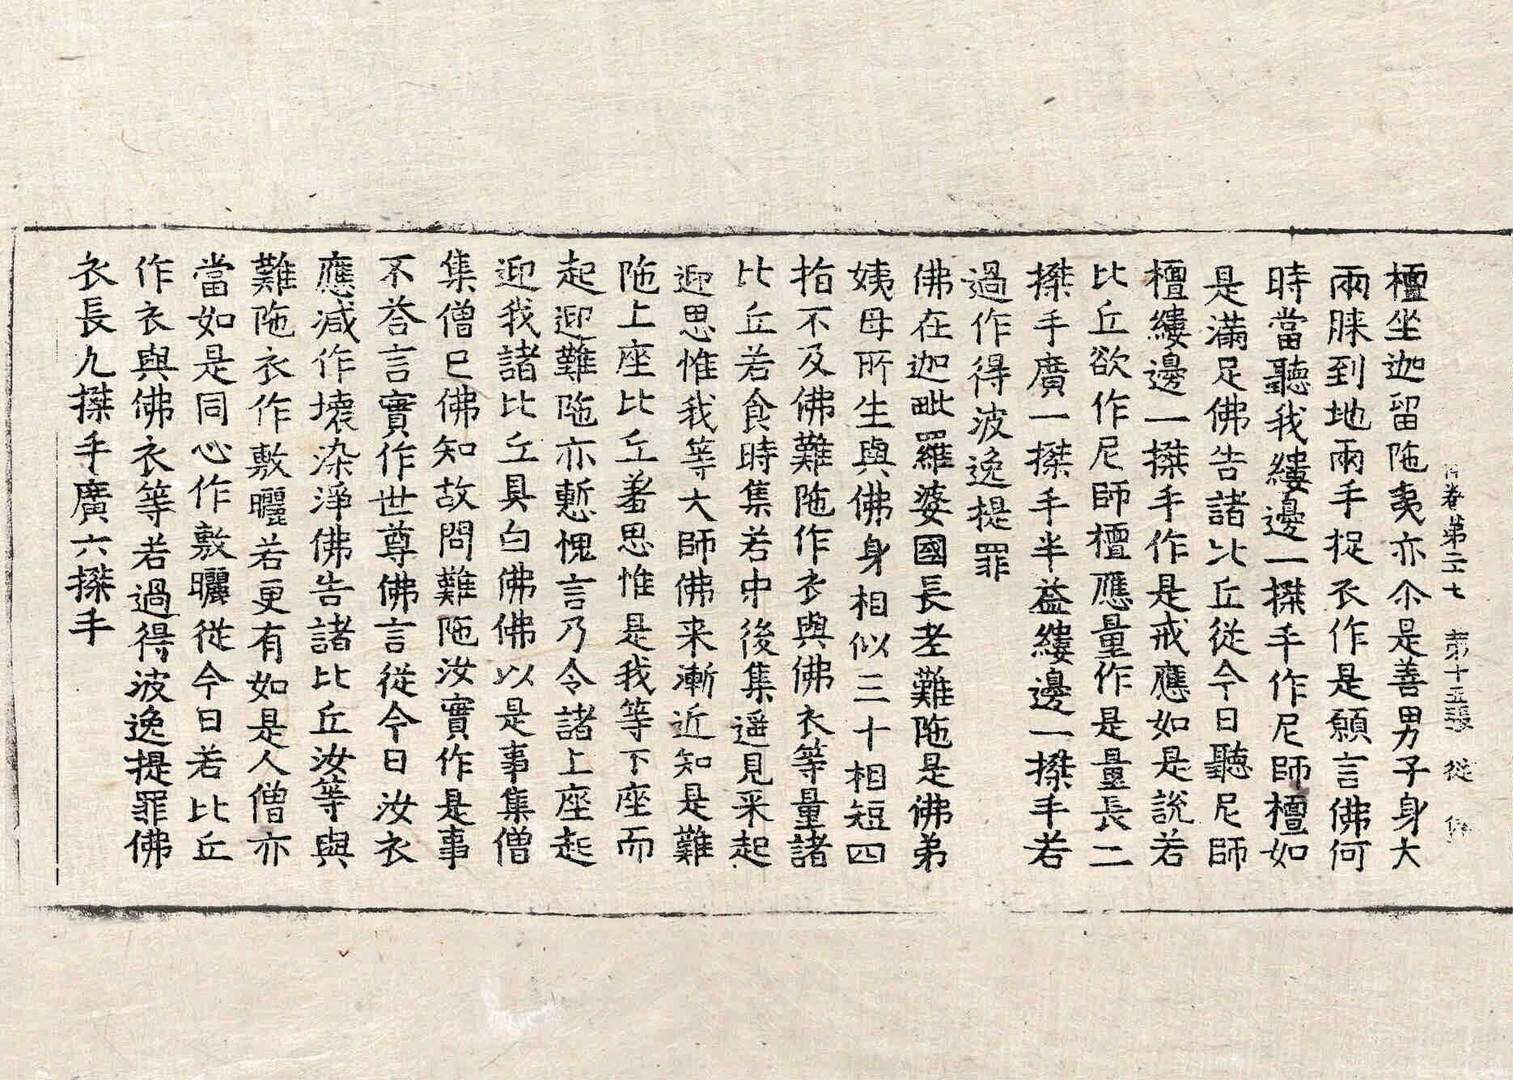 檀坐迦留陁夷亦尒是善男子身大
兩膝到地兩手捉衣作是願言佛何
時當聽我縷邊一搩手作尼師檀如
是滿足佛告諸比丘從今日聽尼師
檀縷邊一搩手作是戒應如是說若
比丘欲作尼師檀應量作是量長二
搩手廣一搩手半益縷邊一搩手若
過作得波逸提罪
佛在迦毗羅婆國長老難陁是佛弟
姨母所生與佛身相似三十相短四
指不及佛難陁作衣與佛衣等量諸
比丘若食時集若中後集遥見来起
迎思惟我等大師佛来漸近知是難
陁上座比丘羞思惟是我等下座而
起迎難陁亦慙愧言乃令諸上座起
迎我諸比丘具白佛佛以是事集僧
集僧已佛知故問難陁汝實作是事
不荅言實作世尊佛言從今日汝衣
應減作壞染淨佛告諸比丘汝等與
難陁衣作敷曬若更有如是人僧亦
當如是同心作敷曬從今日若比丘
作衣與佛衣等若過得波逸提罪佛
衣長九搩手廣六搩手
卷第二十七 第十五張 從